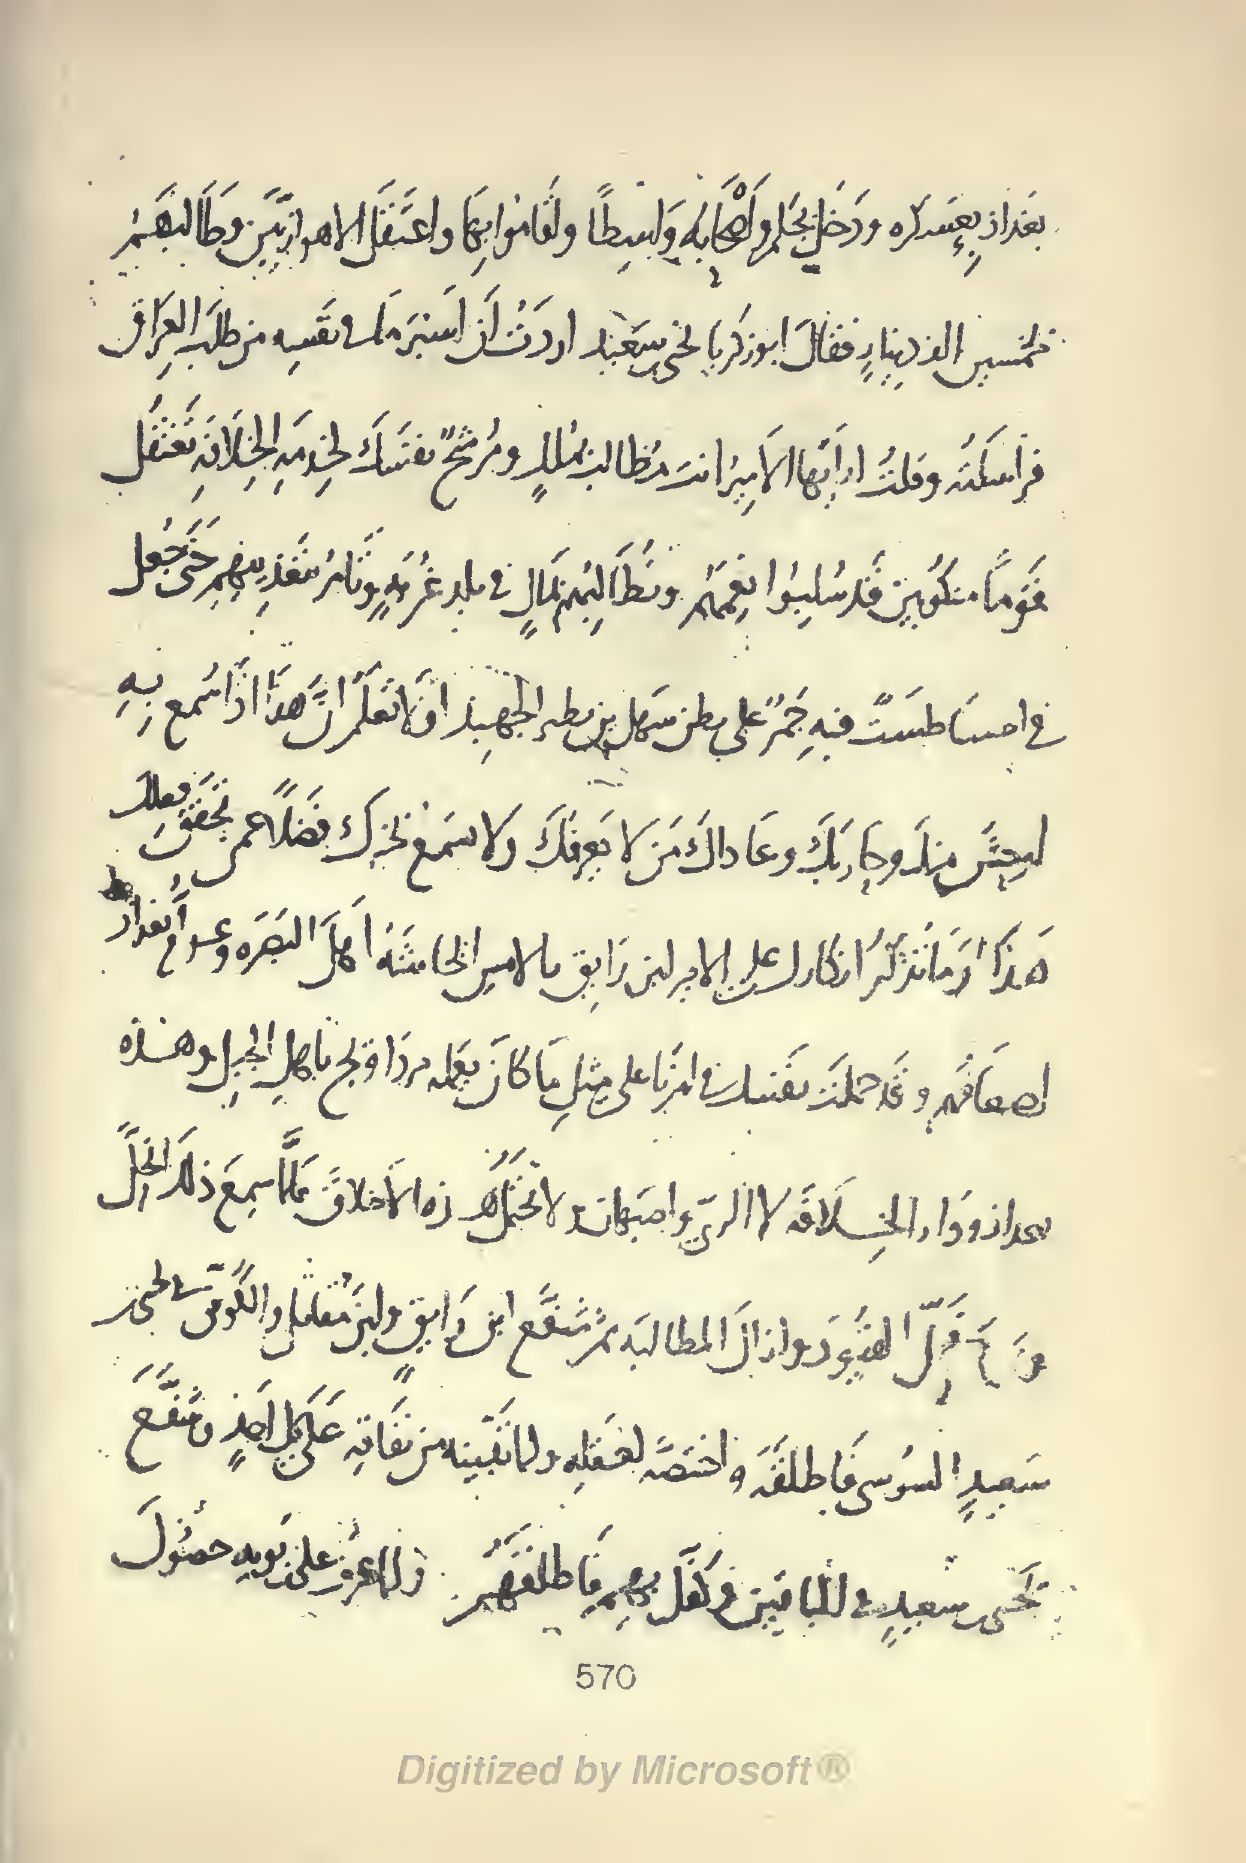 بغداذ بعسكره ودخل بجكم واصحابه واسطا واقاموا بها واعتقل الاهوازيين وطالبهم
بخمسين الف دينار فقال ابو زكريا يحيى بن سعيد اردت أن اسبر ما في نفسه من طلب العراق
فراسلته وقلت ايها الامير انت مطالب بملك ومرشح نفسك لخدمة الخلافة تعتقل
قوما منكوبين قد سلبوا نعمهم وتطالبهم بمال في بلد غربة وتامر بتعذيبهم حتى جعل
في امسنا طست فيه جمر على بطن سهل بن نظير الجهبذ اولا تعلم ان هذا اذا سمع به
استوحش منك وحاربك وعاداك من لا يعرفك ولا سمع بخبرك فضلا عمن تحقق فعلك
هذا أوما تذكر انكارك على الامير ابن رايق بالامس ايحاشه أهل البصرة وعوام بغداد
اضعافهم وقد حملت نفسك في امرنا على مثل ما كان يعمله مرداويج باهل الجبل وهذه
بغداذ ودار الخلافة لا الري واصبهان لا تحتمل هذه الاخلاق فلما سمع ذلك انحل
وحل القيود وازال المطالبة ثم شفع ابن رايق وابن مقاتل والكوفي في يحيى بن
سعيد السوسي فاطلقه واختصه لعقله ولما تبينه من نفاقه على كل احد وشفع
يحيى بن سعيد في الباقين وكفل بهم فاطلقهم ولما عرف على بن بويه حصول
570
Digitized by Microsoft®